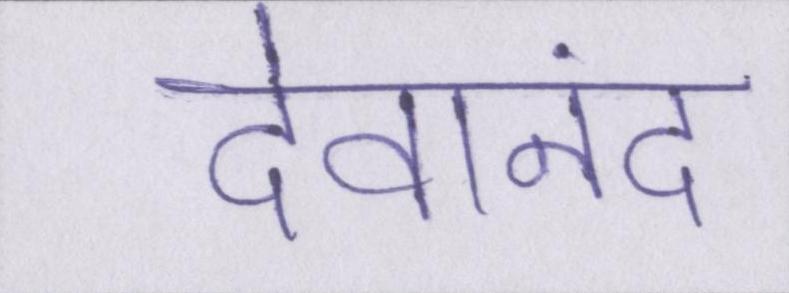 देवानंद